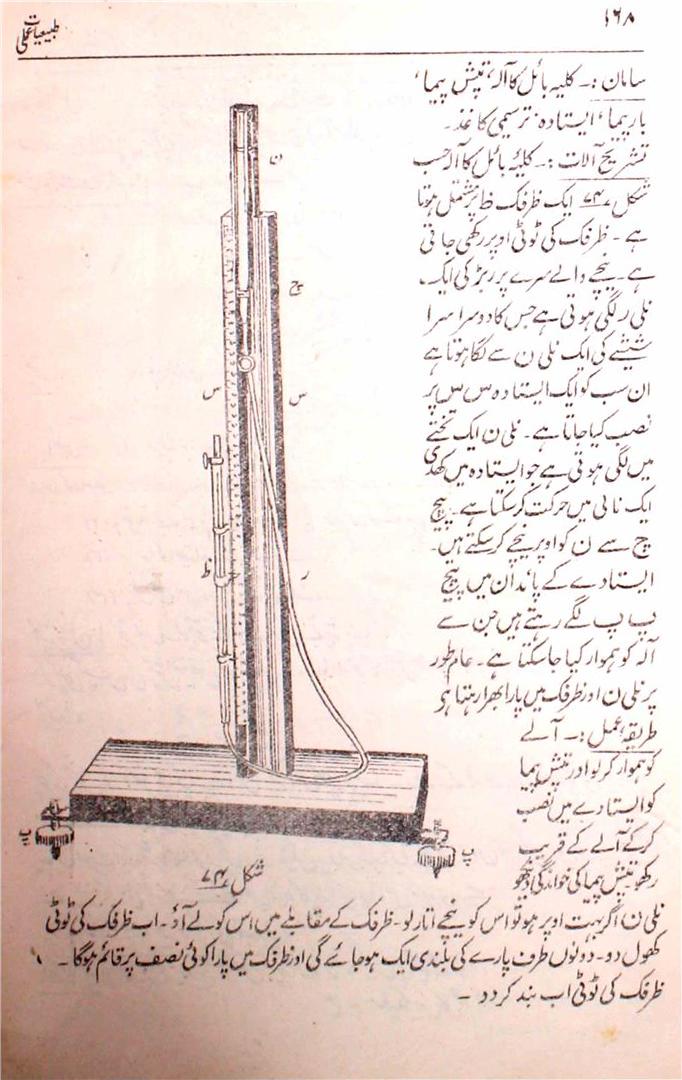 ۱۶۸
طبیعیات عملی
سامان :۔ کلیہ بائل کا آلہ، تپش پیما،
بار پیما، ایستادہ، ترسیمی کاغذ۔
تشریح آلات :۔ کلیۂ بائل کا آلہ حسب
شکل ۷۴ ایک ظرفک ظ پر مشتمل ہوتا
ہے۔ ظرفک کی ٹوٹی اوپر رکھی جاتی
ہے۔ نیچے والے سرے پر ربڑ کی ایک
نلی ر لگی ہوتی ہے جس کا دوسرا سرا
شیشے کی ایک نلی ن سے لگا ہوتا ہے
ان سب کو ایک ایستادہ س س پر
نصب کیا جاتا ہے۔ نلی ن ایک تختے
میں لگی ہوتی ہے جو ایستادہ میں کھدی
ایک نالی میں حرکت کرسکتا ہے۔ پیچ
چ سے ن کو اوپر نیچے کرسکتے ہیں۔
ایستادے کے پائدان میں پیچ
پ پ لگے رہتے ہیں جن سے
آلہ کو ہموار کیا جاسکتا ہے۔ عام طور
پر نلی ن اور ظرفک میں پارا بھرا رہتا ہی
طریقۂ عمل :۔ آلے
کو ہموار کرلو اور تپش پیما
کو ایستادے میں نصب
کرکے آلے کے قریب
رکھو تپش پیما کی خواندگی دیکھو
نلی ن اگر بہت اوپر ہو تو اس کو نیچے اتار لو۔ ظرفک کے مقابلے میں اس کو لے آؤ۔ اب ظرفک کی ٹوٹی
کھول دو۔ دونوں طرف پارے کی بلندی ایک ہوجائے گی اور ظرفک میں پارا کوئی نصف پر قائم ہوگا۔
ظرفک کی ٹوٹی اب بند کردو۔
ن
چ
س
س
ظ
ر
پ
پ
شکل ۷۴